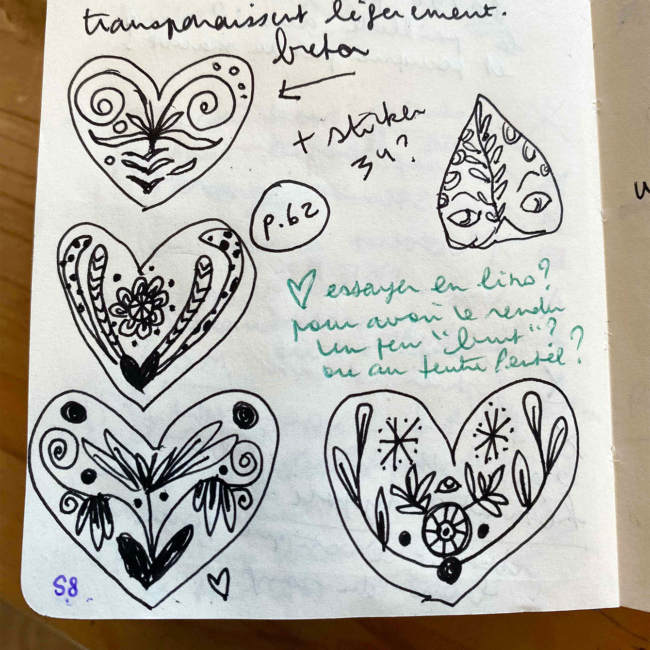 transparaissent légèrement.
breton
+ sticker
3u?
p.62
♡ essayer en lino?
pour avoir le rendu
un peu "brut"?
ou au feutre Pentel?
58